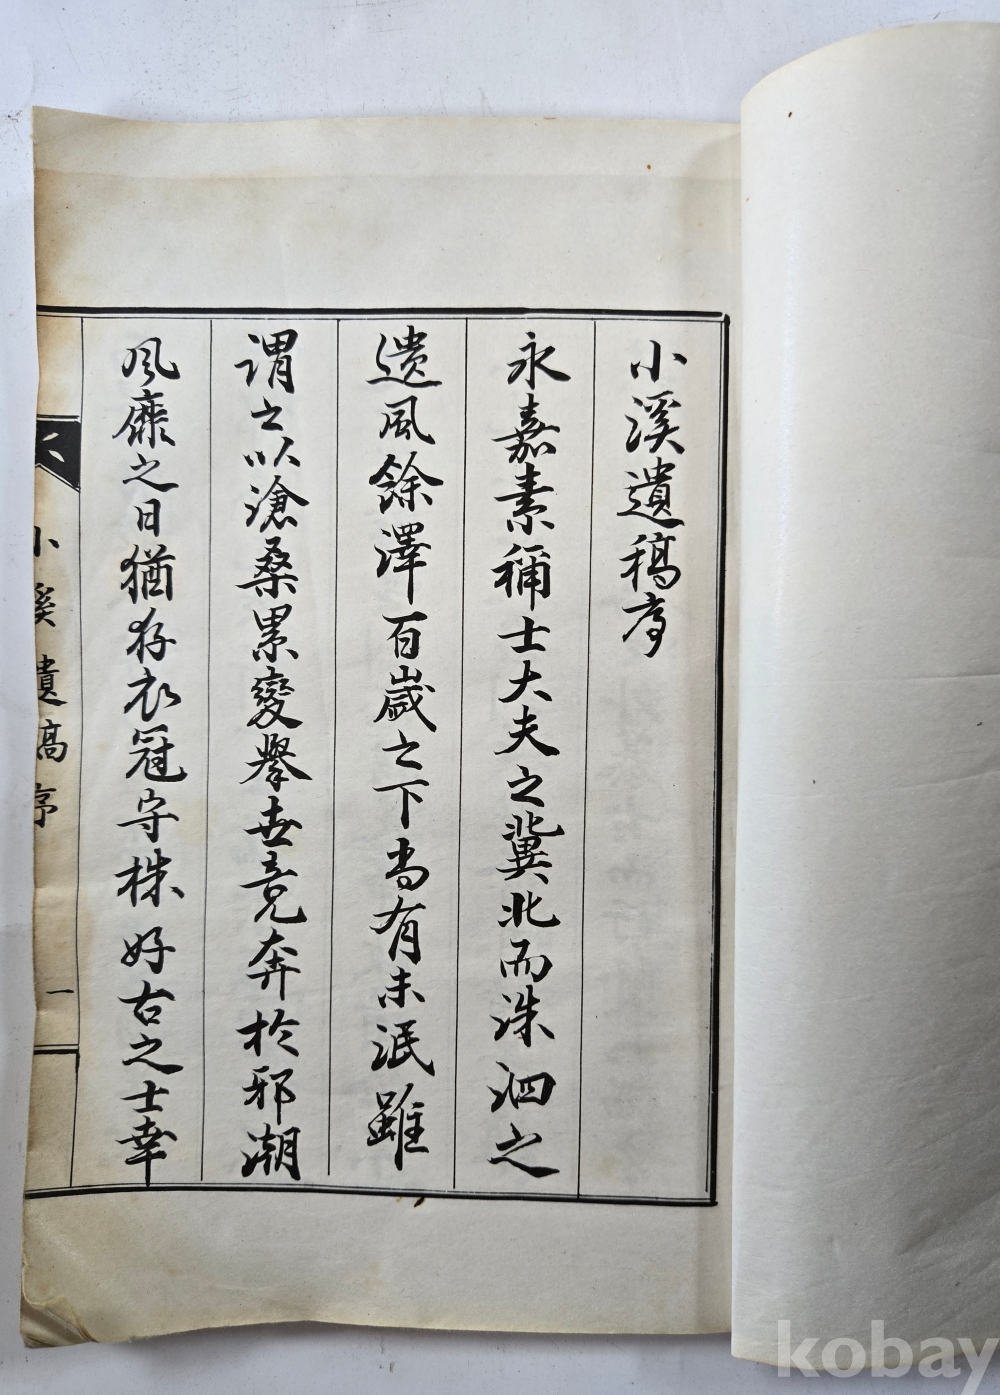 小溪遺稿序
永嘉素稱士大夫之冀北而洙泗之
遺風餘澤百歲之下尚有未泯雖
謂之以滄桑累變擧世竞奔於邪潮
風靡之日猶存衣冠守株好古之士幸
小溪遺稿序
一
kobay